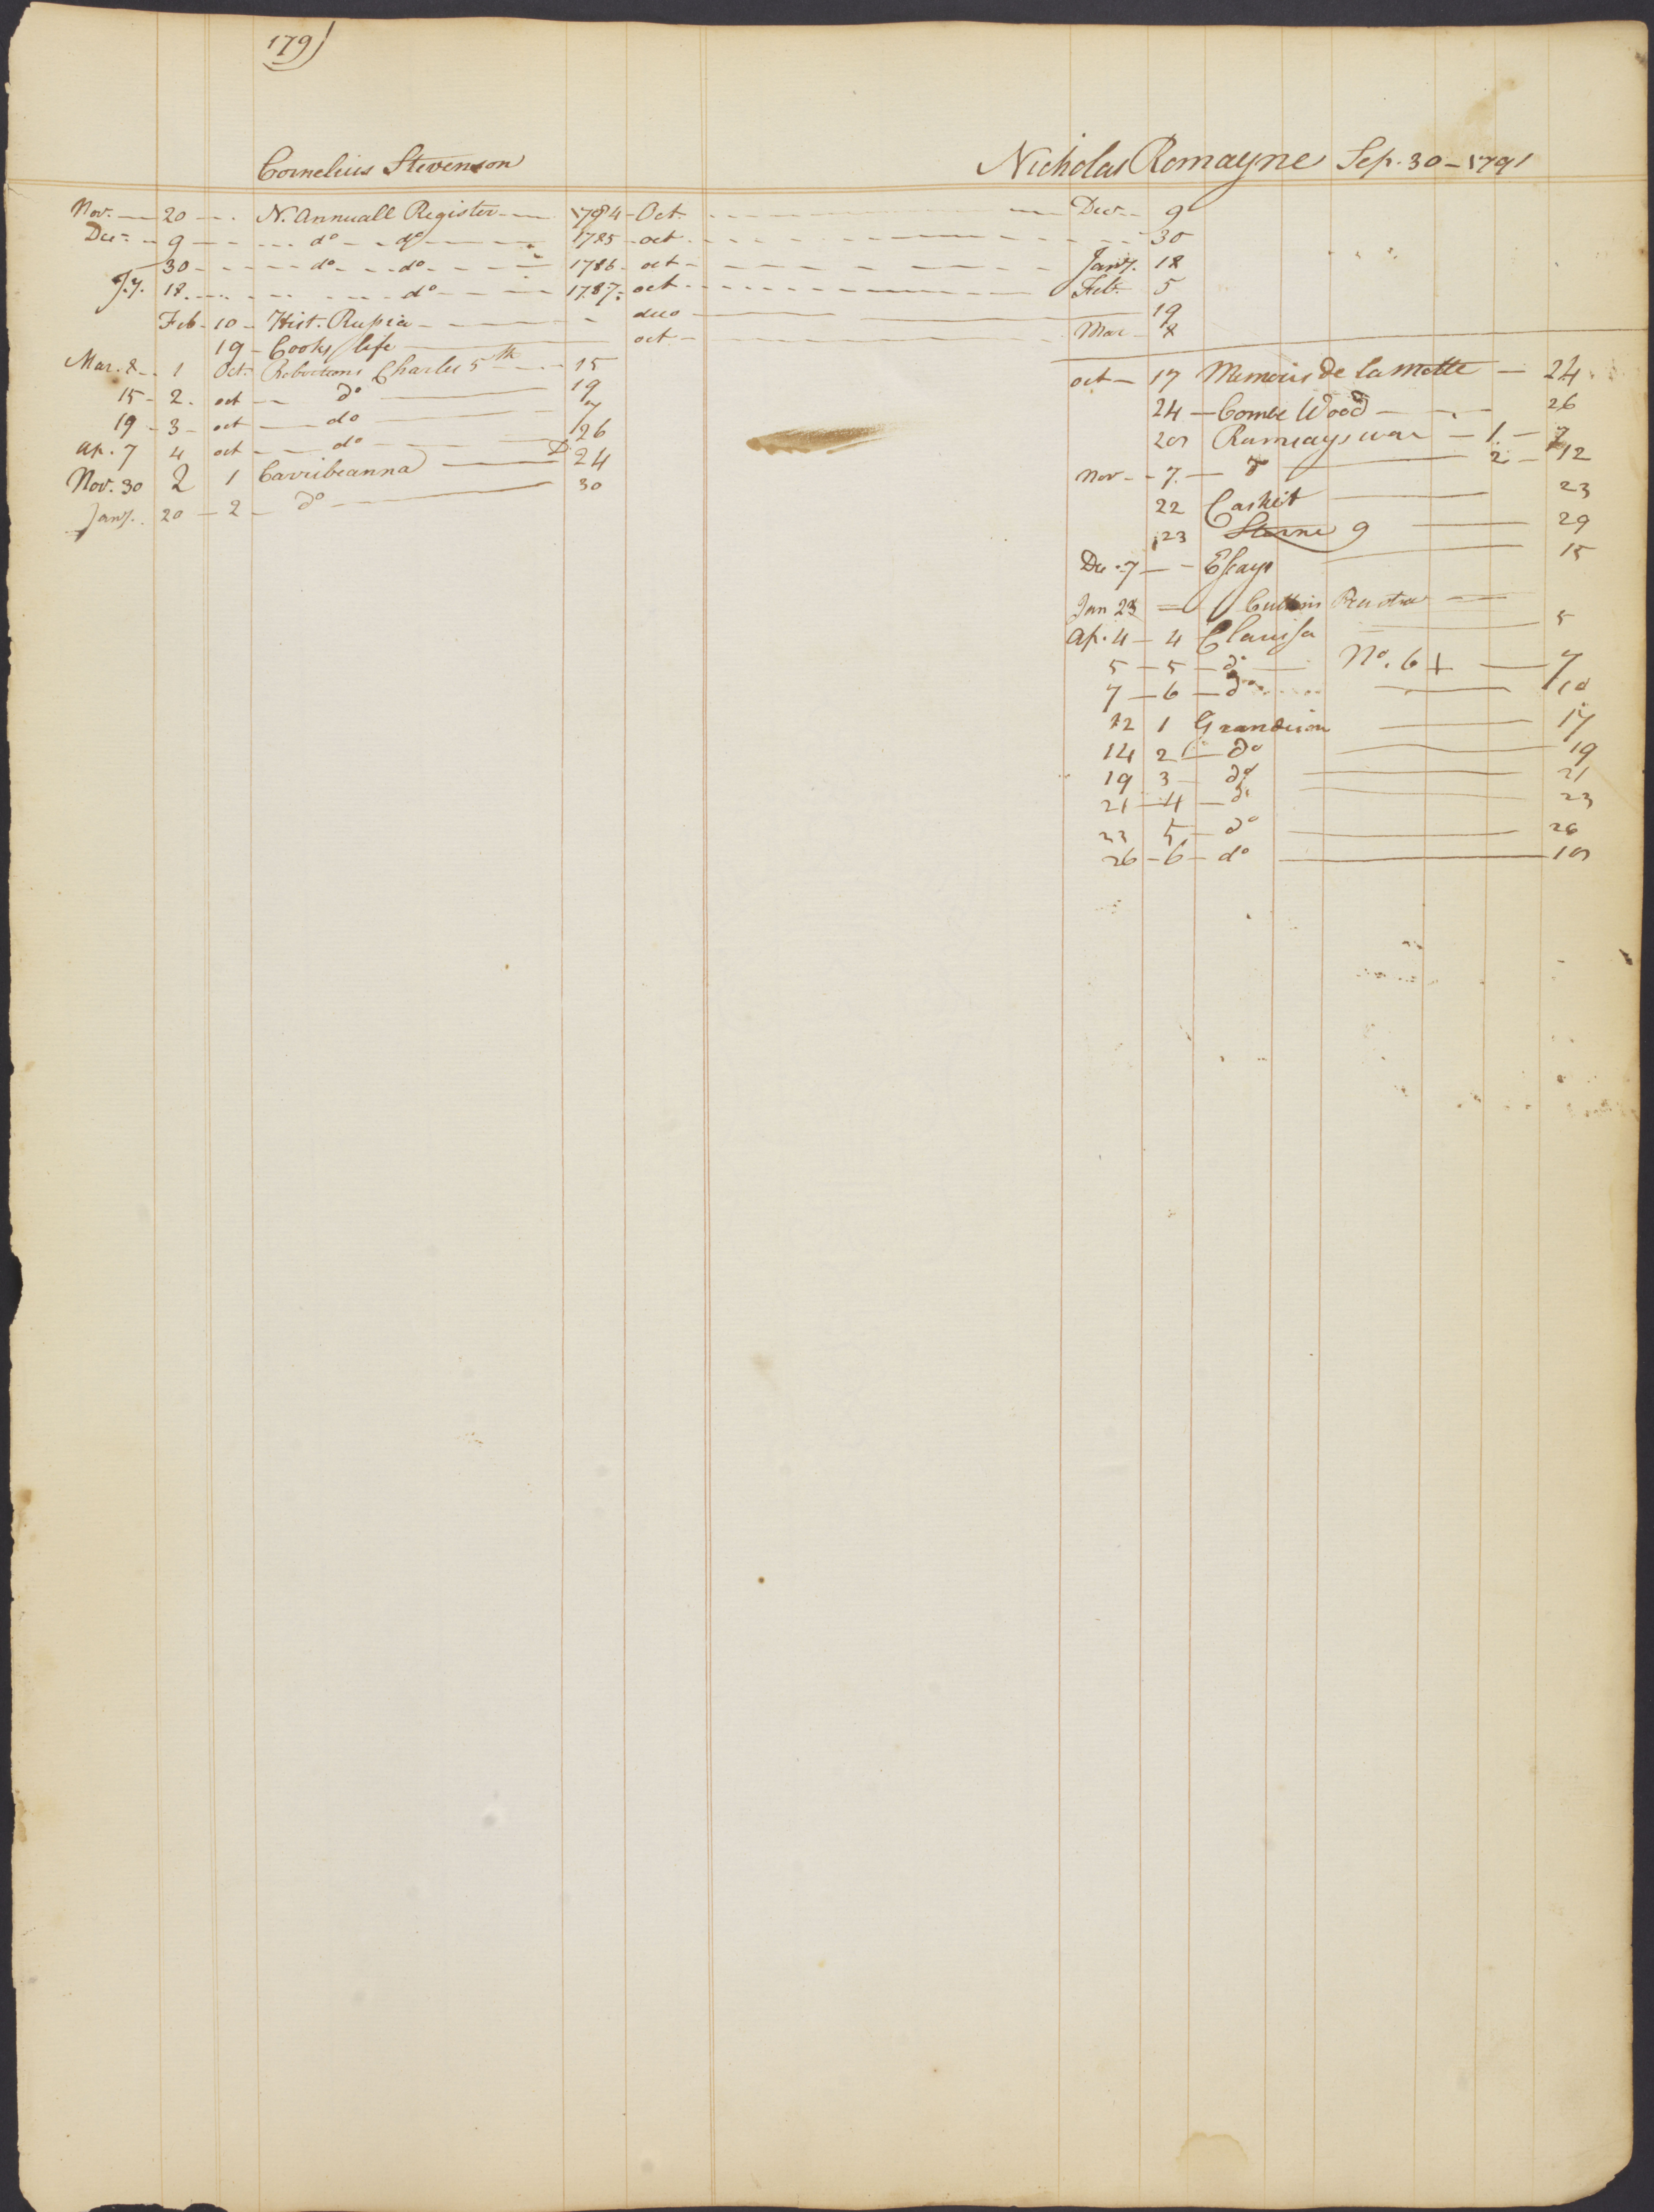 179)
Cornelius Stevenson
Nov. — 20 — N. Annuall Register — 1784 — Oct. — Decr — 9
Dec — 9 — do — do — 1785 — oct — 30
30 — do — do — 1786 — oct — Jany. 18
J.y. 18 — do — 1787 — oct — Feb. 5
Feb — 10 — Hist. Rusia — duo — 19
19 — Cooks life — oct — Mar — 8
Mar. 8 — 1 Oct Robertsons Charles 5th — 15
15 — 2. oct — do — 19
19 — 3 — oct — do — 7
Ap. 7 4 oct — do — 26
Nov. 30 2 1 Carribeanna — D 24
Jany. 20 — 2 — do — 30
Nicholas Romayne Sep. 30 — 1791
oct — 17 Memoirs de la Motte — 24
24 — Combe Wood — 26
Ramsays war — 1. — 7
Nov — 7. — do — 2 — 12
22 Casket — 23
23 Sterne 9 — 29
Dec. 7 — Essays — 15
Jan 23 —
Ap. 4 — 4 Clarissa — 5
5 — 5 — do — No. 6 + — 7
7 — 6 — do — 10
12 1 Grandison — 17
14 2 — do — 19
19 3 — do — 21
21 — 4 — do — 23
23 5 — do — 26
26 — 6 — do —